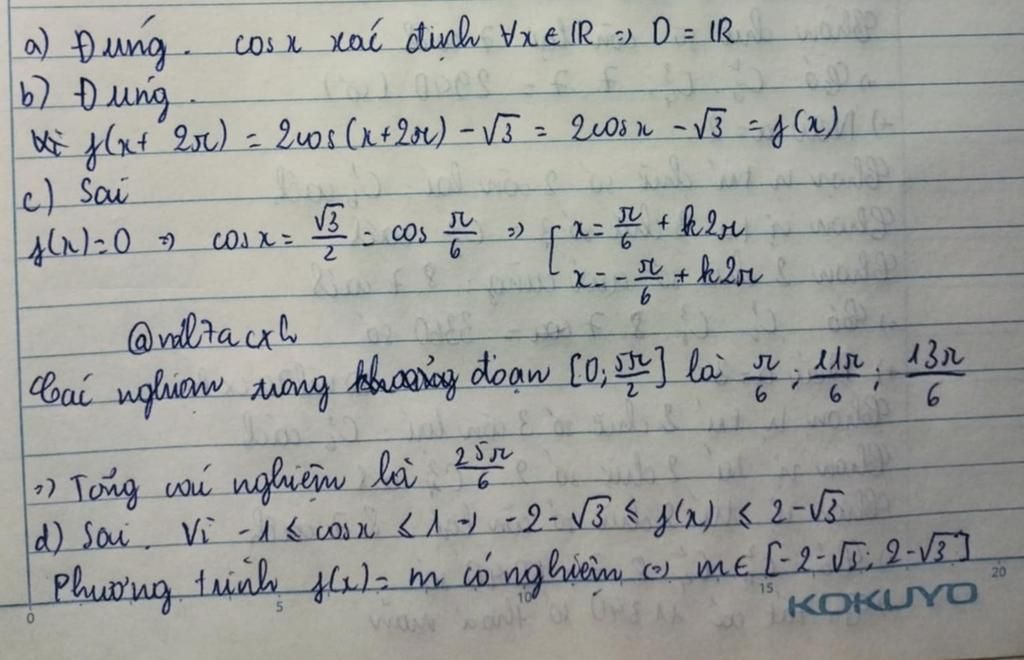 a) Đúng. cosx xác định ∀x ∈ ℝ => D = ℝ
b) Đúng.
Vì f(x + 2π) = 2cos(x+2π) - √3 = 2cosx - √3 = f(x)
c) Sai
f(x)=0 => cosx = √3/2 = cos π/6 => [ x = π/6 + k2π
x = -π/6 + k2π
@ndl7acxh
Các nghiệm trong khoảng đoạn [0; 5π/2] là π/6; 11π/6; 13π/6
=> Tổng các nghiệm là 25π/6
d) Sai. Vì -1 ≤ cosx ≤ 1 => -2 - √3 ≤ f(x) ≤ 2 - √3
Phương trình f(x) = m có nghiệm <=> m ∈ [-2-√3; 2-√3]
0 5 10 15 20
KOKUYO